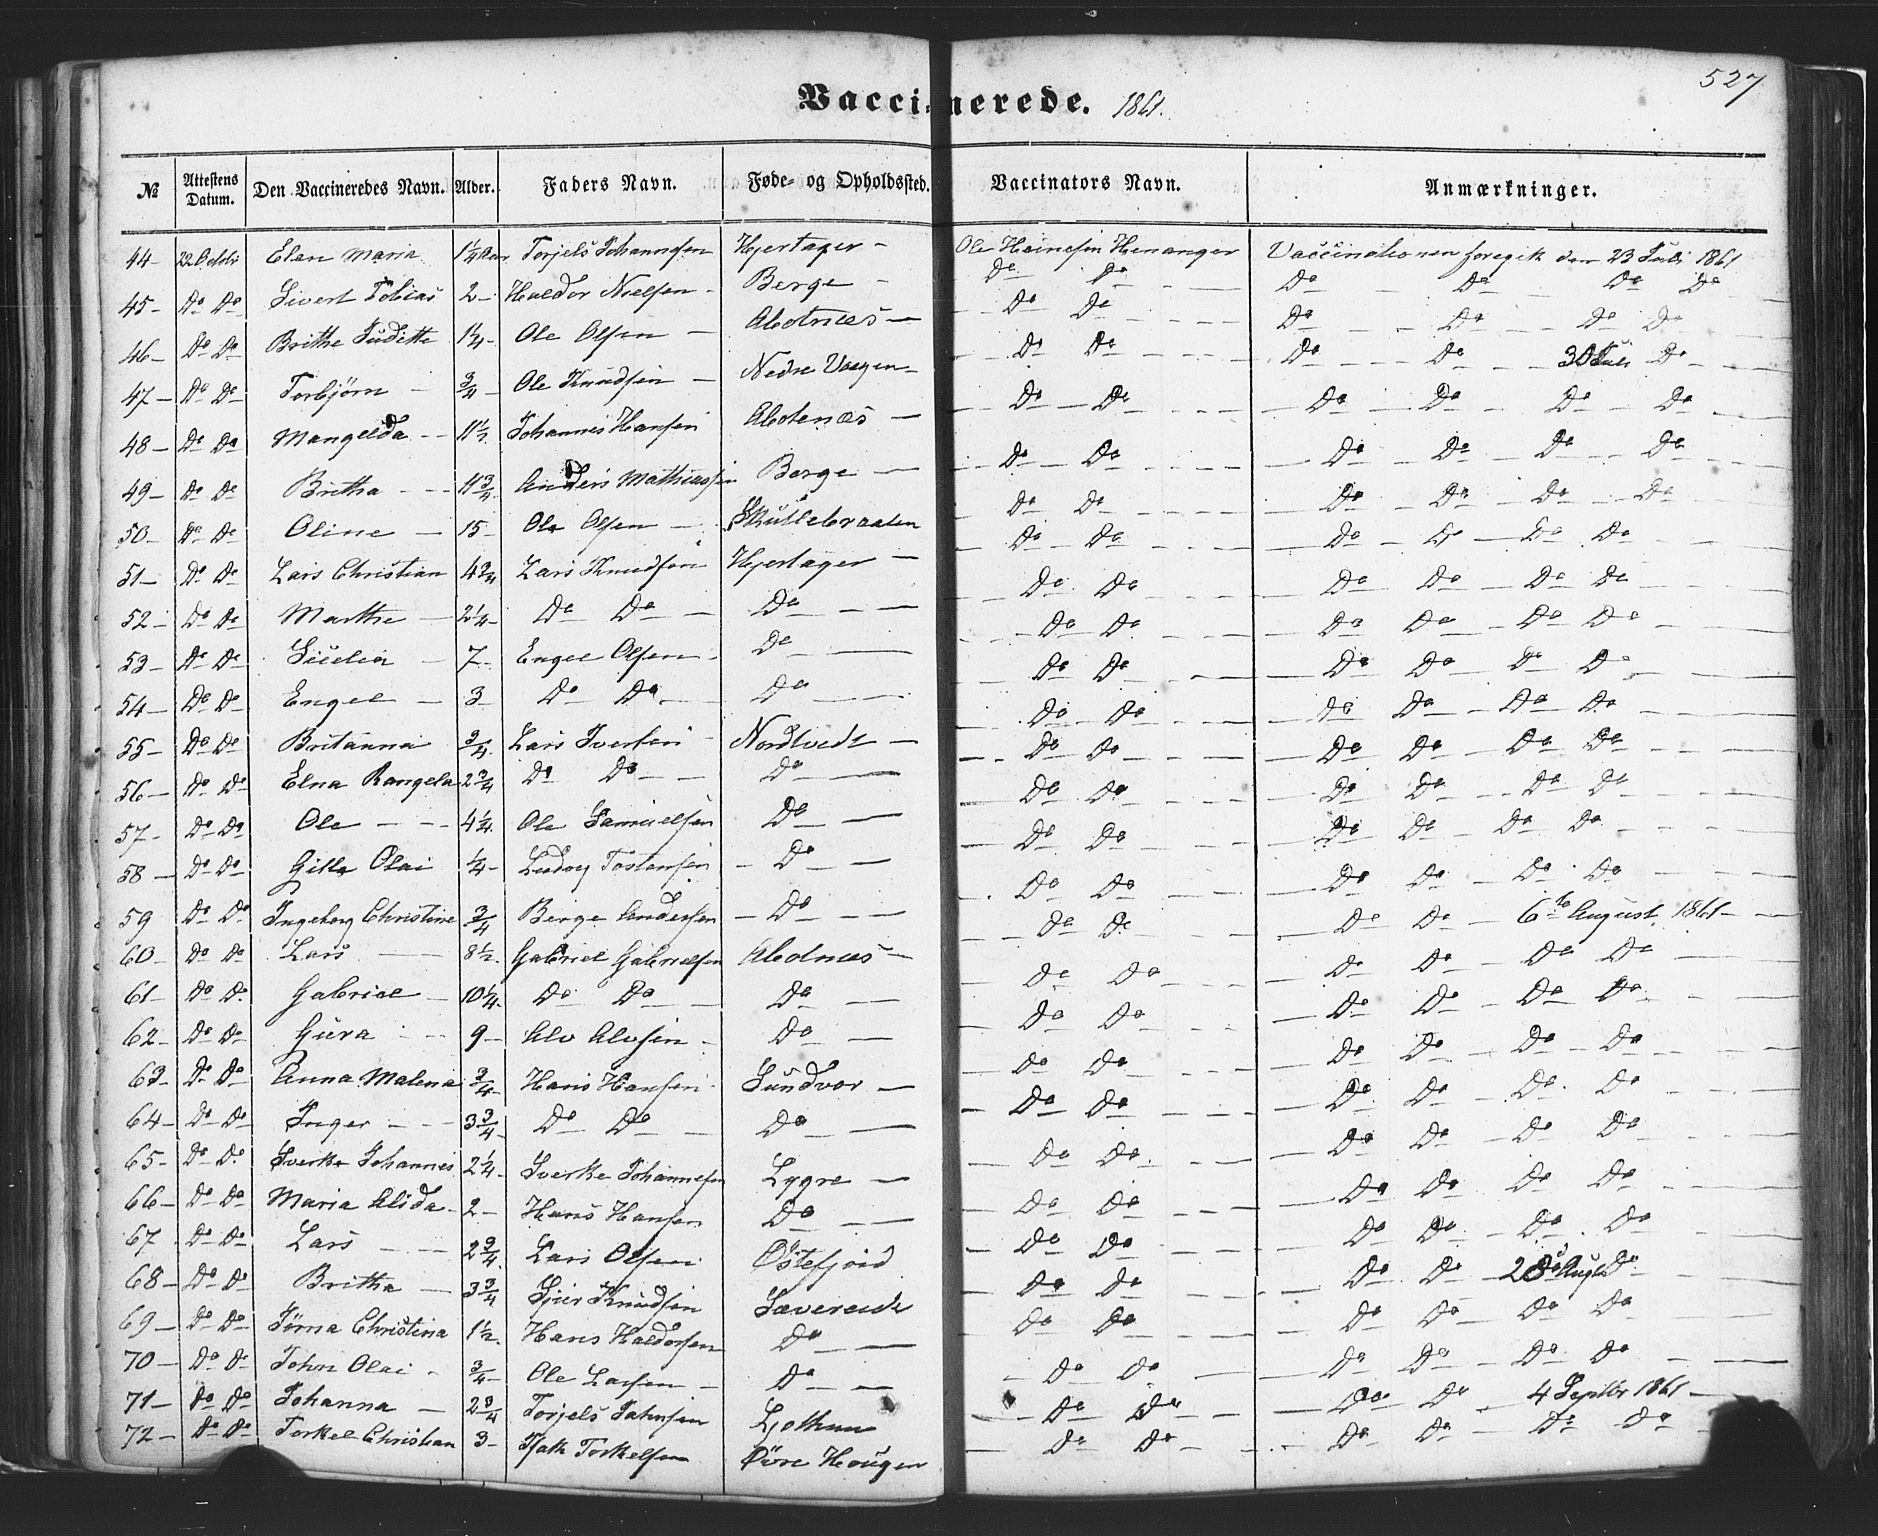 527
Vaccinerede. 1861.
№ Attestens Datum. Den Vaccineredes Navn. Alder. Faders Navn. Føde- og Opholdssted. Vaccinators Navn. Anmærkninger.
44 22 Octbr Elen Maria 1¼ Torjels Johannesen Hjertager Ole Heinesen Henanger Vaccinationen foregik den 23 Juli 1861
45 Do Do Sivert Tobias 2 Haldor Nielsen Berge Do Do Do Do Do Do
46 Do Do Brithe Juditte 1¼ Ole Olsen Alotnæs Do Do Do Do Do Do
47 Do Do Torbjørn ¾ Ole Knudsen Nedre Vaagen Do Do Do Do 30 Juli Do
48 Do Do Mangelda 11½ Johannes Hansen Alotenæs Do Do Do Do Do Do
49 Do Do Britha 11¾ Anders Mathiassen Berge Do Do Do Do Do Do
50 Do Do Oline 15 Ole Olsen Skullebraaten Do Do Do Do Do Do
51 Do Do Lars Christian 4¾ Lars Knudsen Hjertager Do Do Do Do Do Do
52 Do Do Marthe 2¼ Do Do Do Do Do Do Do Do Do
53 Do Do Sicelia 7 Engel Olsen Do Do Do Do Do Do Do
54 Do Do Engel 3 Do Do Do Do Do Do Do Do Do
55 Do Do Britanna ¾ Lars Iversen Nordtvedt Do Do Do Do Do Do
56 Do Do Elna Rangela 2¾ Do Do Do Do Do Do Do Do Do
57 Do Do Ole 4¼ Ole Samuelsen Do Do Do Do Do Do Do
58 Do Do Gitle Olai ¼ Ludvig Tostensen Do Do Do Do Do Do Do
59 Do Do Ingeborg Christine ¾ Berge Andersen Do Do Do Do Do Do Do
60 Do Do Lars 8½ Gabriel Gabrielsen Alotnæs Do Do Do Do 6te August 1861
61 Do Do Gabriel 10¼ Do Do Do Do Do Do Do Do Do
62 Do Do Gura 9 Alv Alvsen Do Do Do Do Do Do Do
63 Do Do Anna Malena ¾ Hans Hansen Sundvor Do Do Do Do Do Do
64 Do Do Inger 3¾ Do Do Do Do Do Do Do Do Do
65 Do Do Sverke Johannes 2¼ Sverke Johannesen Lygre Do Do Do Do Do Do
66 Do Do Maria Alida 2 Hans Hansen Do Do Do Do Do Do Do
67 Do Do Lars 2¾ Lars Olsen Østefjord Do Do Do Do Do Do
68 Do Do Britha 3¾ Sjur Knudsen Sævereide Do Do Do Do 28 Augst Do
69 Do Do Jørna Christina 1½ Hans Haldorsen Do Do Do Do Do Do Do
70 Do Do John Olai ¾ Ole Larsen Do Do Do Do Do Do Do
71 Do Do Johanna 2¾ Torjels Johnsen Ljothun Do Do Do Do 4 Septbr 1861
72 Do Do Torkel Christian 3 Torkelsen Øvre Hougen Do Do Do Do Do Do